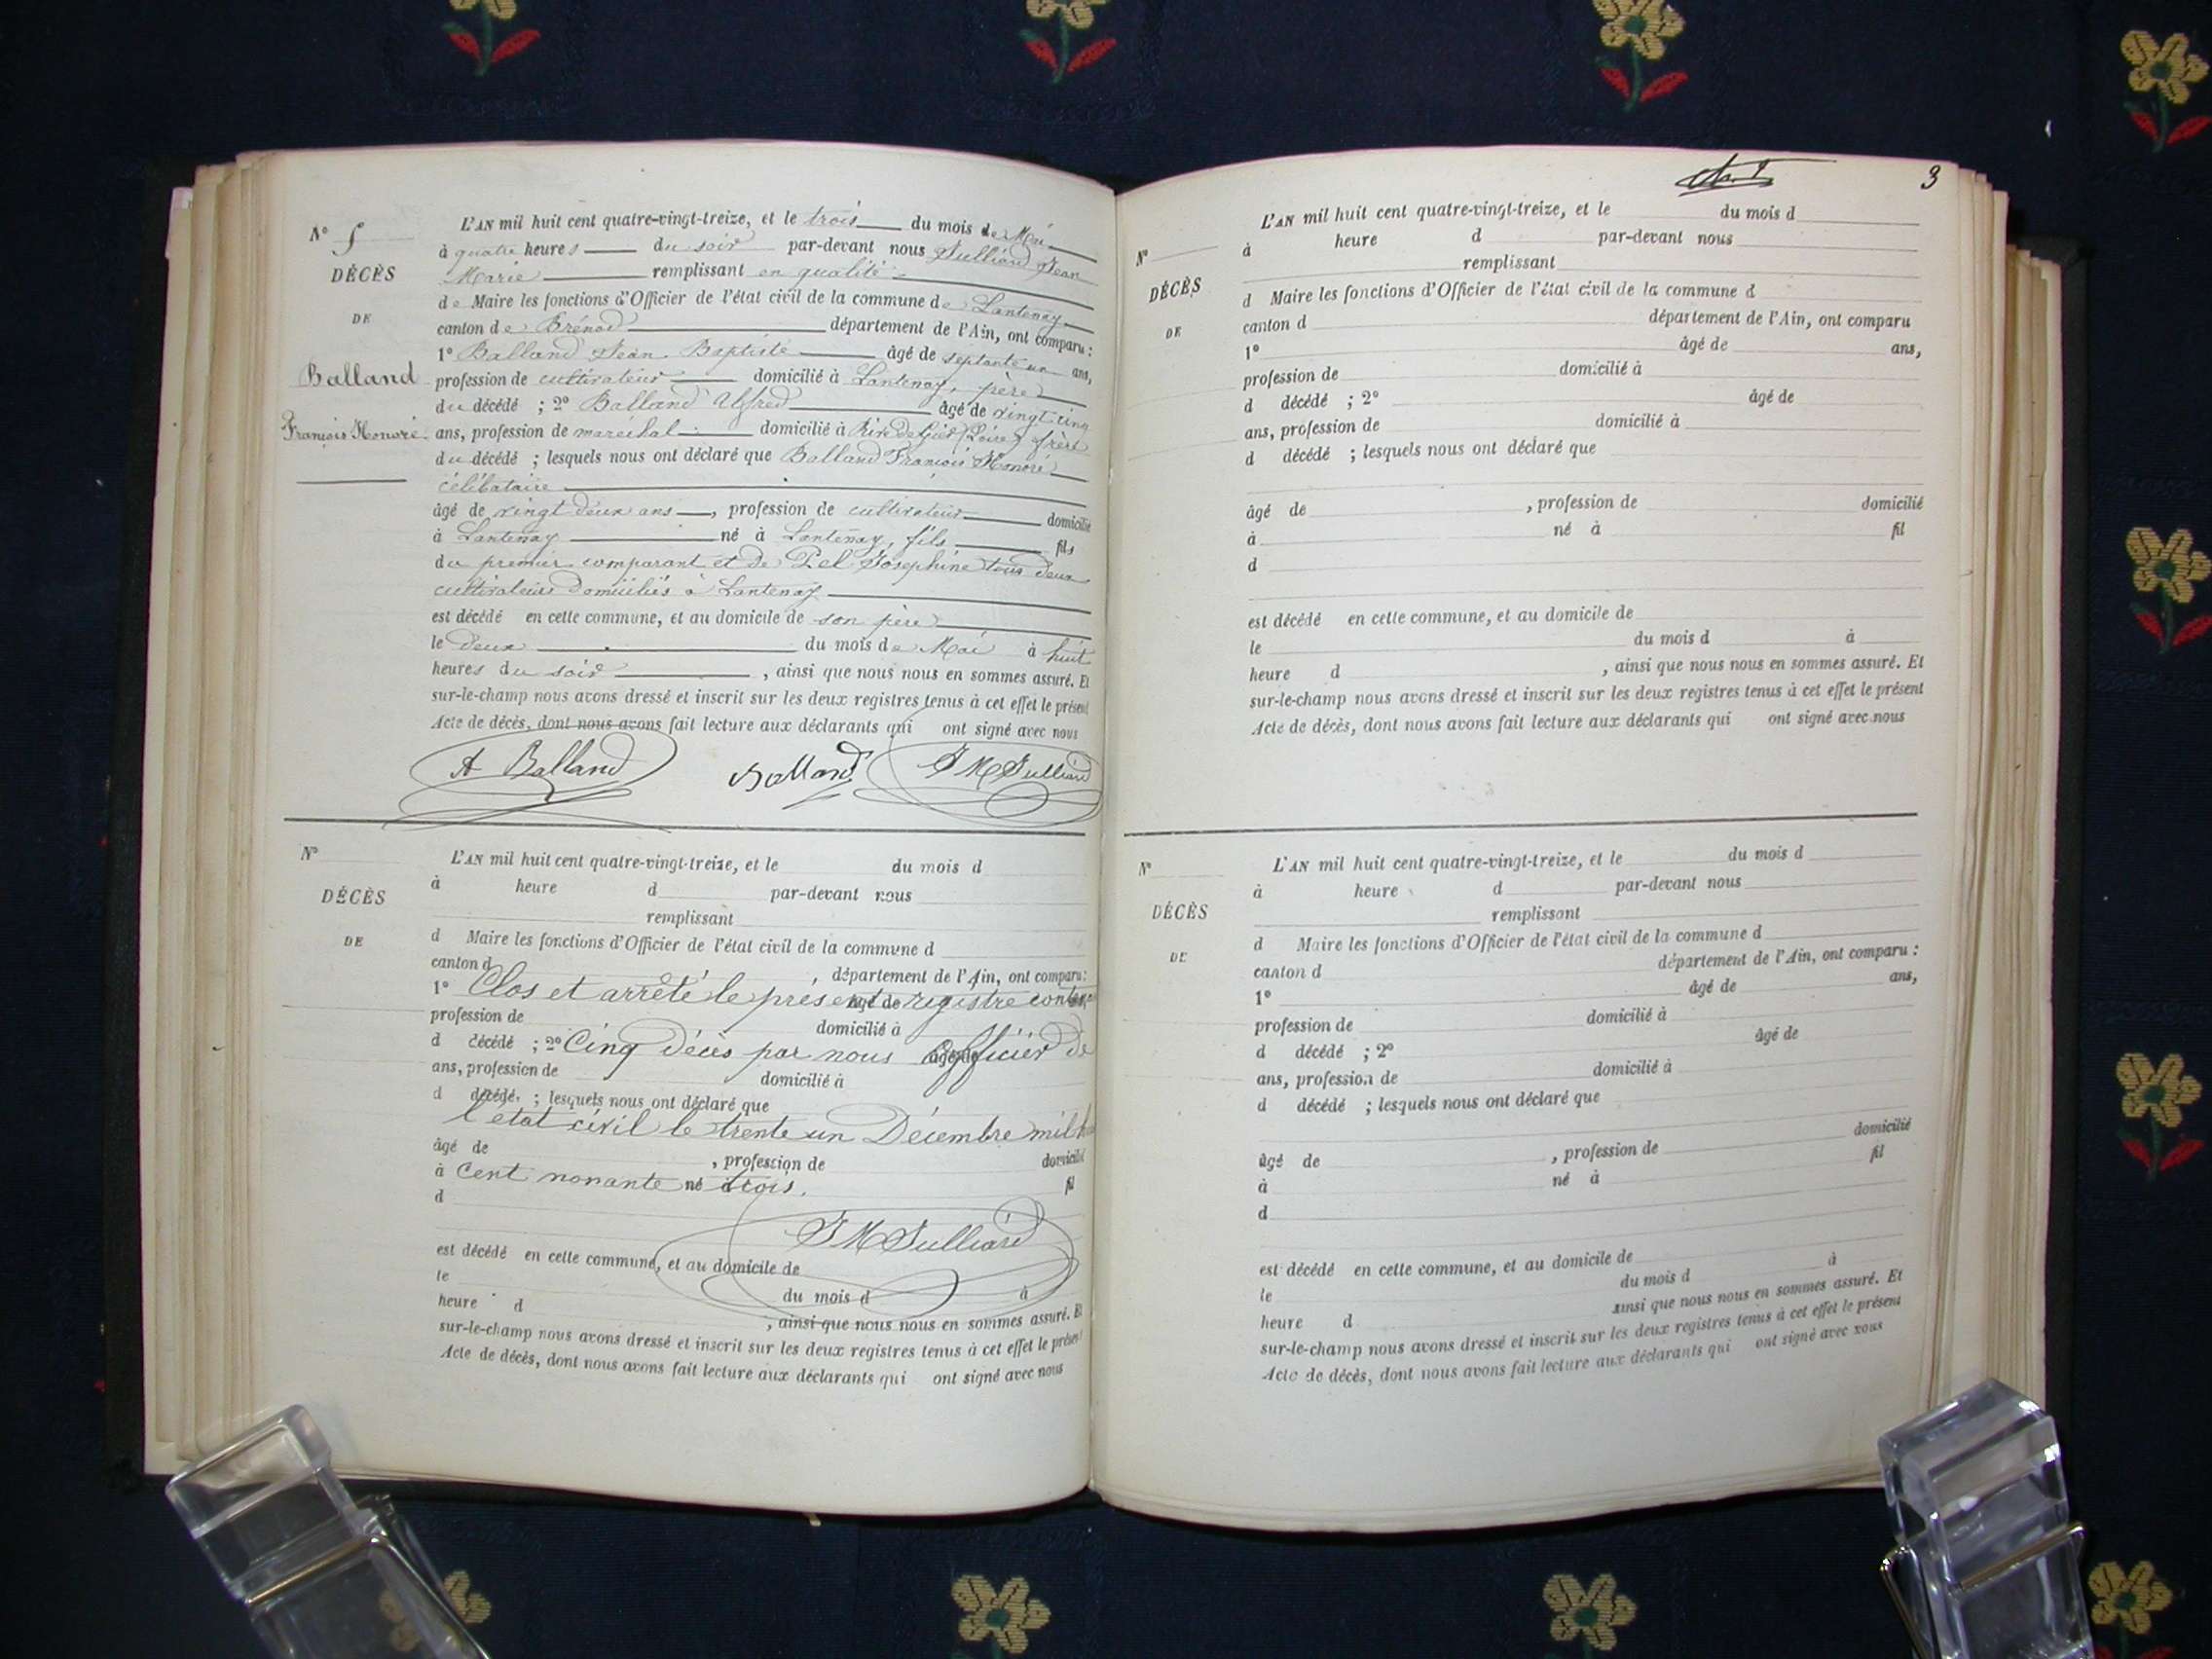 N° 5
DÉCÈS
DE
Balland
François Honoré
L'AN mil huit cent quatre-vingt-treize, et le trois du mois de Mai
à quatre heures du soir par-devant nous Julliard Jean
Marie remplissant en qualité
de Maire les fonctions d'Officier de l'état civil de la commune de Lantenay
canton de Brénod département de l'Ain, ont comparu :
1° Balland Jean Baptiste âgé de septante un ans,
profession de cultivateur domicilié à Lantenay, père
du décédé ; 2° Balland Alfred âgé de vingt cinq
ans, profession de marechal domicilié à Rive de Gier (Loire) frère
du décédé ; lesquels nous ont déclaré que Balland François Honoré
célibataire
âgé de vingt deux ans, profession de cultivateur domicilié
à Lantenay né à Lantenay, fils fils
du premier comparant et de Pel Josephine tous deux
cultivateurs domiciliés à Lantenay
est décédé en cette commune, et au domicile de son père
le deux du mois de Mai à huit
heures du soir, ainsi que nous nous en sommes assuré. Et
sur-le-champ nous avons dressé et inscrit sur les deux registres tenus à cet effet le présent
Acte de décès, dont nous avons fait lecture aux déclarants qui ont signé avec nous
A Balland Balland J M Julliard
N°
DÉCÈS
DE
L'AN mil huit cent quatre-vingt-treize, et le du mois d
à heure d par-devant nous
remplissant
d Maire les fonctions d'Officier de l'état civil de la commune d
canton d , département de l'Ain, ont comparu :
1° âgé de
Clos et arrêté le présent registre
profession de domicilié à
d décédé ; 2° âgé de
Cinq décès par nous Officier de
ans, profession de domicilié à
d décédé ; lesquels nous ont déclaré que
l'etat civil le trente un Décembre mil
âgé de , profession de domicilié
à né à fil
Cent nonante trois.
d
J M Julliard
est décédé en cette commune, et au domicile de
le du mois d à
heure d , ainsi que nous nous en sommes assuré. Et
sur-le-champ nous avons dressé et inscrit sur les deux registres tenus à cet effet le présent
Acte de décès, dont nous avons fait lecture aux déclarants qui ont signé avec nous
3
N°
DÉCÈS
DE
L'AN mil huit cent quatre-vingt-treize, et le du mois d
à heure d par-devant nous
remplissant
d Maire les fonctions d'Officier de l'état civil de la commune d
canton d département de l'Ain, ont comparu
1° âgé de ans,
profession de domicilié à
d décédé ; 2° âgé de
ans, profession de domicilié à
d décédé ; lesquels nous ont déclaré que
âgé de , profession de domicilié
à né à fil
d
est décédé en cette commune, et au domicile de
le du mois d à
heure d , ainsi que nous nous en sommes assuré. Et
sur-le-champ nous avons dressé et inscrit sur les deux registres tenus à cet effet le présent
Acte de décès, dont nous avons fait lecture aux déclarants qui ont signé avec nous
N°
DÉCÈS
DE
L'AN mil huit cent quatre-vingt-treize, et le du mois d
à heure d par-devant nous
remplissant
d Maire les fonctions d'Officier de l'état civil de la commune d
canton d département de l'Ain, ont comparu :
1° âgé de ans,
profession de domicilié à
d décédé ; 2° âgé de
ans, profession de domicilié à
d décédé ; lesquels nous ont déclaré que
âgé de , profession de domicilié
à né à fil
d
est décédé en cette commune, et au domicile de
le du mois d à
heure d ainsi que nous nous en sommes assuré. Et
sur-le-champ nous avons dressé et inscrit sur les deux registres tenus à cet effet le présent
Acte de décès, dont nous avons fait lecture aux déclarants qui ont signé avec nous